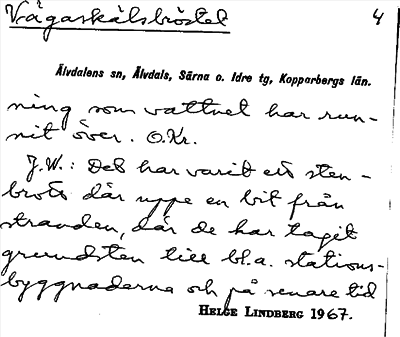 Vågaskålsbröstet 4
Älvdalens sn, Älvdals, Särna o. Idre tg, Kopparbergs län.
ning som vattnet har run-
nit över. O.Kr.
J.W.: Det har varit ett sten-
brott där uppe en bit från
stranden, där de har tagit
grundsten till bl.a. stations-
byggnaderna och på senare tid
HELGE LINDBERG 1967.